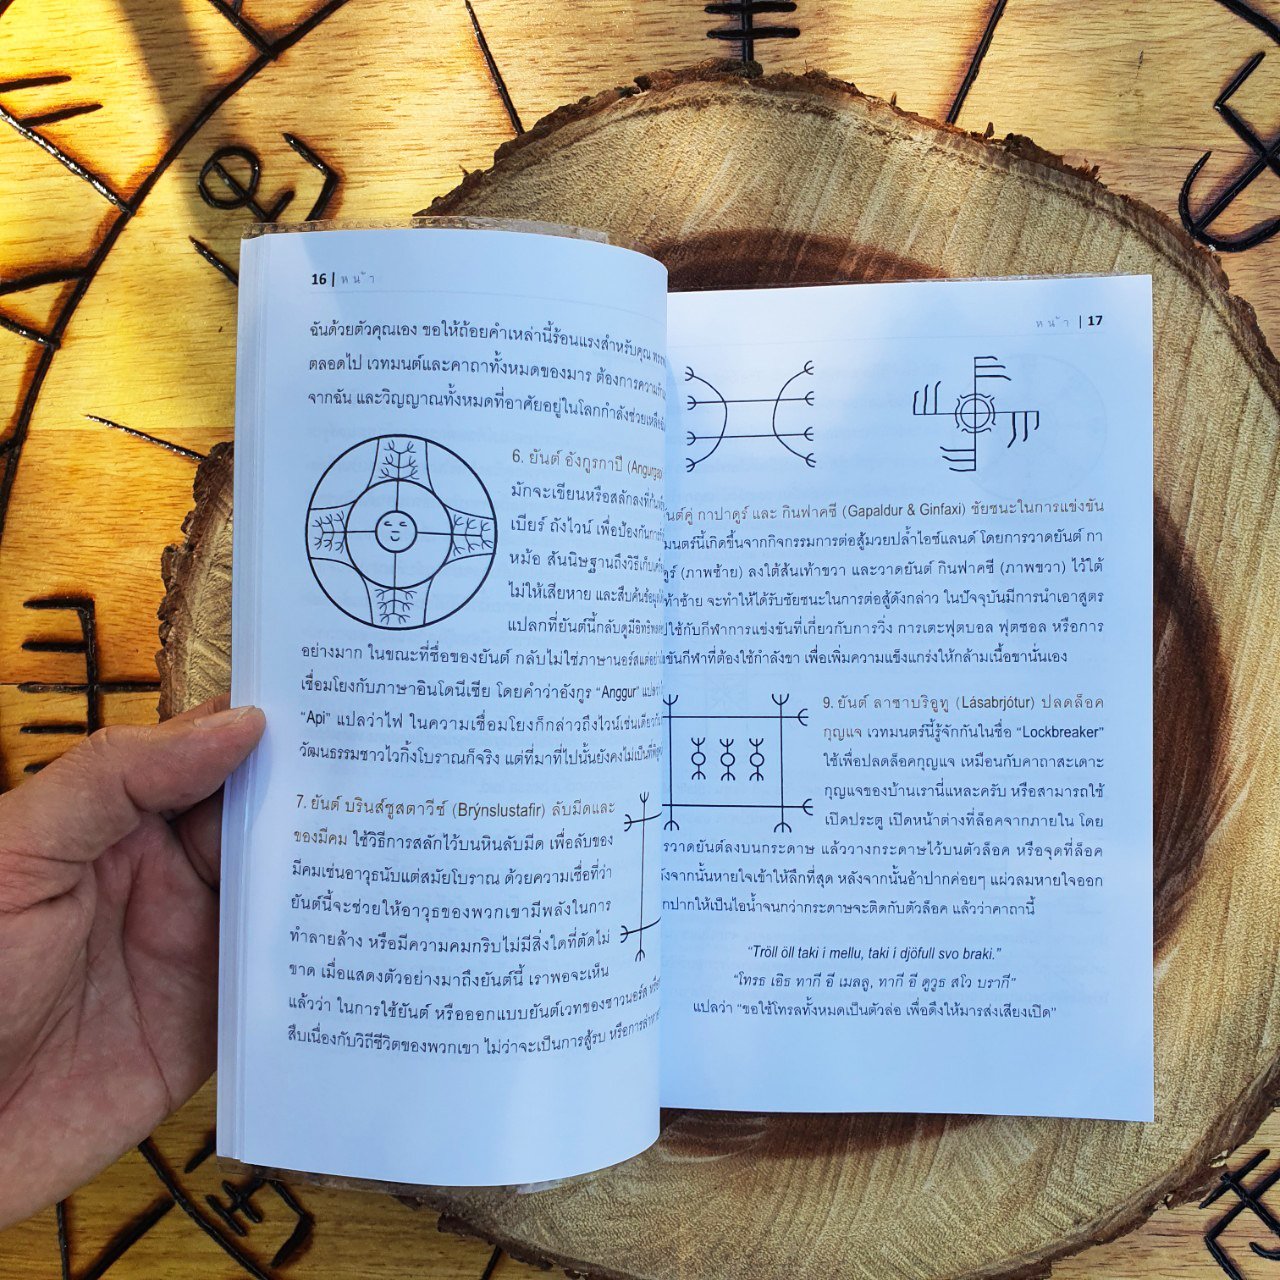 16 | ห น ้ า
ฉันด้วยตัวคุณเอง ขอให้ถ้อยคำเหล่านี้ร้อนแรงสำหรับคุณ
ตลอดไป เวทมนต์และคาถาทั้งหมดของมาร ต้องการความ
จากฉัน และวิญญาณทั้งหมดที่อาศัยอยู่ในโลกกำลังช่วยเหลือ
6. ยันต์ อังกูรกาปี (Angurgapi
มักจะเขียนหรือสลักลงที่ก้น
เบียร์ ถังไวน์ เพื่อป้องกันการ
หม้อ สันนิษฐานถึงวิธีเก็บ
ไม่ให้เสียหาย และสืบค้นข้อมูล
แปลกที่ยันต์นี้กลับดูมีอิทธิพล
อย่างมาก ในขณะที่ชื่อของยันต์ กลับไม่ใช่ภาษานอร์ส
เชื่อมโยงกับภาษาอินโดนีเซีย โดยคำว่าอังกูร “Anggur” แปลว่า
“Api” แปลว่าไฟ ในความเชื่อมโยงก็กล่าวถึงไวน์เช่นเดียวกัน
วัฒนธรรมชาวไวกิ้งโบราณก็จริง แต่ที่มาที่ไปนั้นยังคงไม่เป็นที่
7. ยันต์ บรินส์ซูสตาวีซ์ (Brýnslustafir) ลับมีดและ
ของมีคม ใช้วิธีการสลักไว้บนหินลับมีด เพื่อลับของ
มีคมเช่นอาวุธนับแต่สมัยโบราณ ด้วยความเชื่อที่ว่า
ยันต์นี้จะช่วยให้อาวุธของพวกเขามีพลังในการ
ทำลายล้าง หรือมีความคมกริบไม่มีสิ่งใดที่ตัดไม่
ขาด เมื่อแสดงตัวอย่างมาถึงยันต์นี้ เราพอจะเห็น
แล้วว่า ในการใช้ยันต์ หรือออกแบบยันต์เวทของชาวนอร์ส
สืบเนื่องกับวิถีชีวิตของพวกเขา ไม่ว่าจะเป็นการสู้รบ หรือการล่า
ห น ้ า | 17
ยันต์คู่ กาปาดูร์ และ กินฟาคซี (Gapaldur & Ginfaxi) ชัยชนะในการแข่งขัน
มนตร์นี้เกิดขึ้นจากกิจกรรมการต่อสู้มวยปล้ำไอซ์แลนด์ โดยการวาดยันต์ กา
ดูร์ (ภาพซ้าย) ลงใต้ส้นเท้าขวา และวาดยันต์ กินฟาคซี (ภาพขวา) ไว้ใต้
ท้าซ้าย จะทำให้ได้รับชัยชนะในการต่อสู้ดังกล่าว ในปัจจุบันมีการนำเอาสูตร
ปใช้กับกีฬาการแข่งขันที่เกี่ยวกับการวิ่ง การเตะฟุตบอล ฟุตซอล หรือการ
ขันกีฬาที่ต้องใช้กำลังขา เพื่อเพิ่มความแข็งแกร่งให้กล้ามเนื้อขานั่นเอง
9. ยันต์ ลาซาบริอูทู (Lásabrjótur) ปลดล็อค
กุญแจ เวทมนตร์นี้รู้จักกันในชื่อ “Lockbreaker”
ใช้เพื่อปลดล็อคกุญแจ เหมือนกับคาถาสะเดาะ
กุญแจของบ้านเรานี่แหละครับ หรือสามารถใช้
เปิดประตู เปิดหน้าต่างที่ล็อคจากภายใน โดย
การวาดยันต์ลงบนกระดาษ แล้ววางกระดาษไว้บนตัวล็อค หรือจุดที่ล็อค
ลังจากนั้นหายใจเข้าให้ลึกที่สุด หลังจากนั้นอ้าปากค่อยๆ แผ่วลมหายใจออก
กปากให้เป็นไอน้ำจนกว่ากระดาษจะติดกับตัวล็อค แล้วว่าคาถานี้
“Tröll öll taki í mellu, taki í djöfull svo braki.”
“โทรธ เอิธ ทากี อี เมลลู, ทากี อี ดูวูธ สโว บรากี”
แปลว่า “ขอใช้โทรลทั้งหมดเป็นตัวล่อ เพื่อดึงให้มารส่งเสียงเปิด”